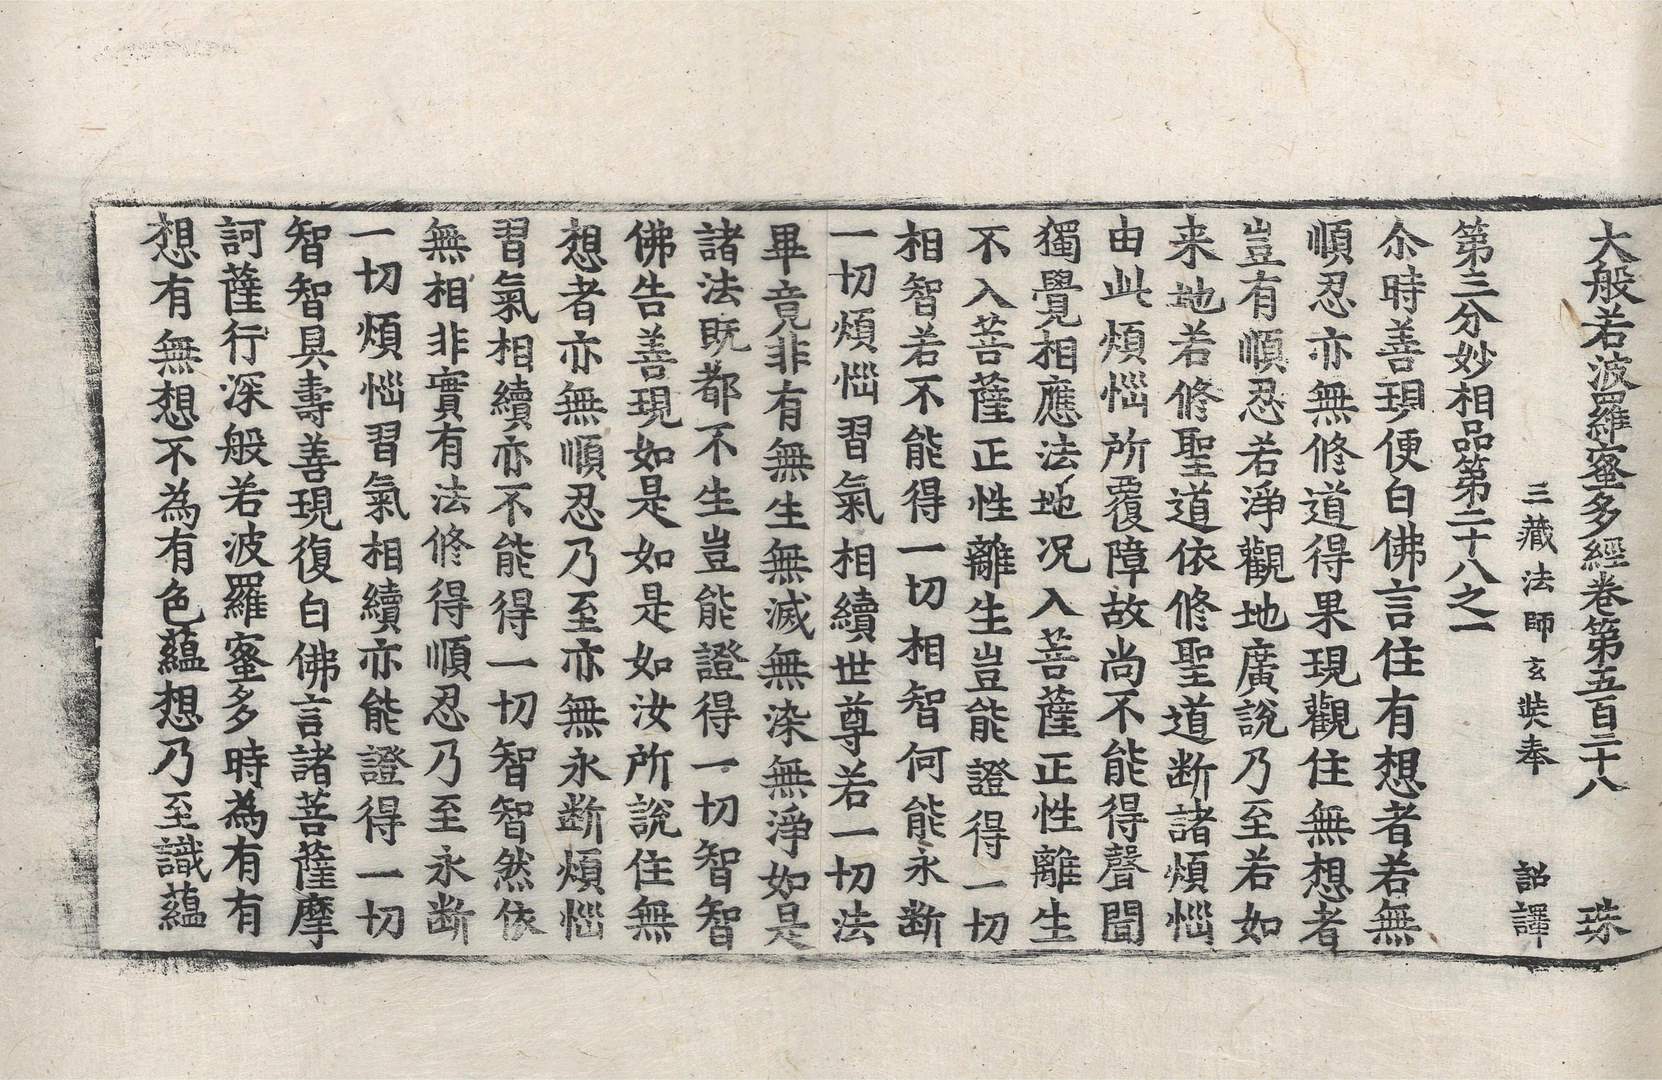 大般若波羅蜜多經卷第五百二十八　珠
三藏法師玄奘奉　詔譯
第三分妙相品第二十八之一
尒時善現便白佛言住有想者若無
順忍亦無修道得果現觀住無想者
豈有順忍若淨觀地廣說乃至若如
来地若修聖道依修聖道断諸煩惱
由此煩惱所覆障故尚不能得聲聞
獨覺相應法地况入菩薩正性離生
不入菩薩正性離生豈能證得一切
相智若不能得一切相智何能永断
一切煩惱習氣相續世尊若一切法
畢竟非有無生無滅無染無淨如是
諸法既都不生豈能證得一切智智
佛告善現如是如是如汝所說住無
想者亦無順忍乃至亦無永断煩惱
習氣相續亦不能得一切智智然依
無相非實有法修得順忍乃至永断
一切煩惱習氣相續亦能證得一切
智智具壽善現復白佛言諸菩薩摩
訶薩行深般若波羅蜜多時為有有
想有無想不為有色蘊想乃至識蘊